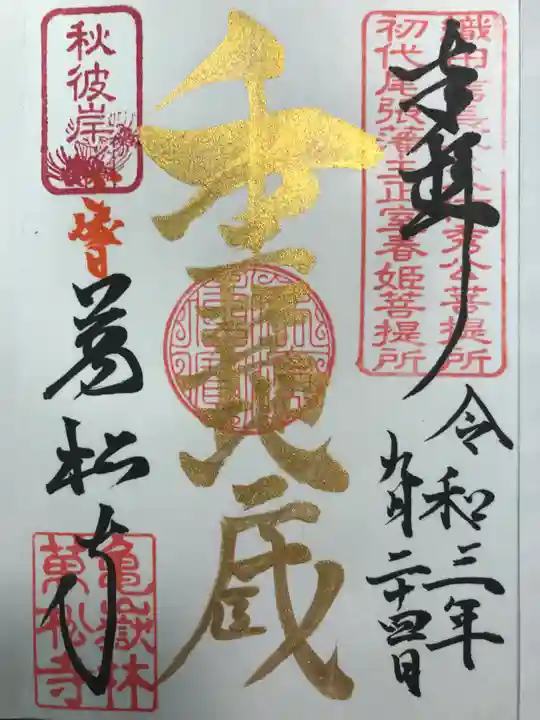 奉拝
織田信長 秀公菩提所
初代尾張藩主正室春姫菩提所
令和三年
九月二十四日
蔵
秋彼岸
萬松寺
亀嶽林
萬松寺